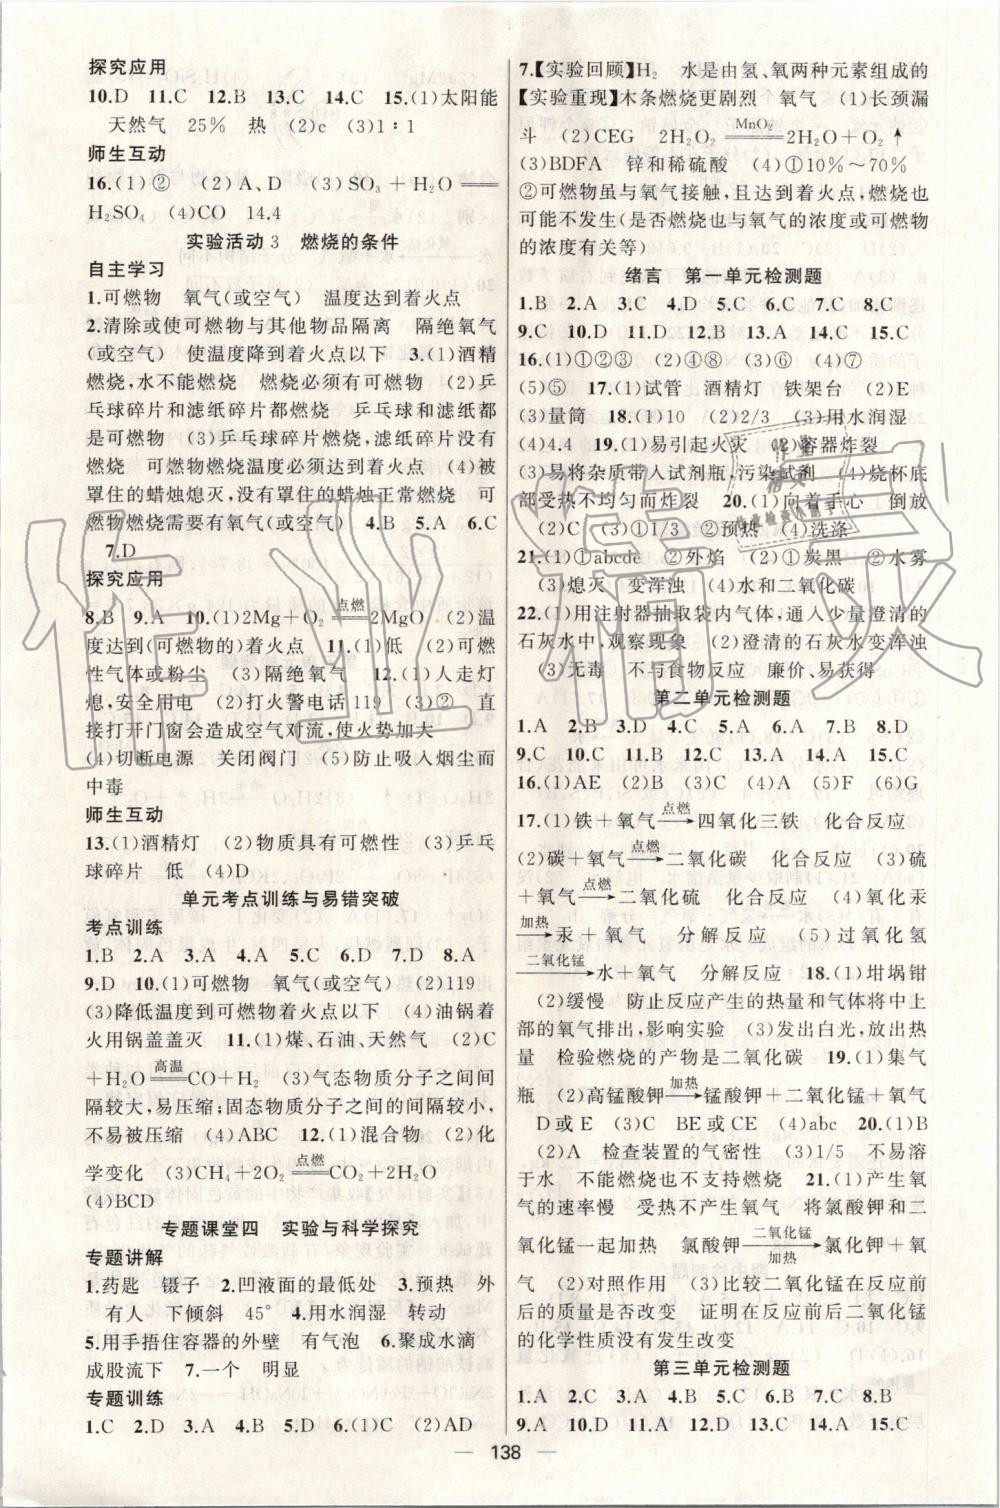 探究应用
10.D 11.C 12.B 13.C 14.C 15.(1)太阳能
天然气 25% 热 (2)c (3)1∶1
师生互动
16.(1)② (2)A、D (3)SO₃+H₂O══
H₂SO₄ (4)CO 14.4
实验活动3 燃烧的条件
自主学习
1.可燃物 氧气(或空气) 温度达到着火点
2.清除或使可燃物与其他物品隔离 隔绝氧气
(或空气) 使温度降到着火点以下 3.(1)酒精
燃烧,水不能燃烧 燃烧必须有可燃物 (2)乒
乓球碎片和滤纸碎片都燃烧 乒乓球和滤纸都
是可燃物 (3)乒乓球碎片燃烧,滤纸碎片没有
燃烧 可燃物燃烧温度必须达到着火点 (4)被
罩住的蜡烛熄灭,没有罩住的蜡烛正常燃烧 可
燃物燃烧需要有氧气(或空气) 4.B 5.A 6.C
7.D
探究应用
8.B 9.A 10.(1)2Mg+O₂ 点燃══ 2MgO (2)温
度达到(可燃物的)着火点 11.(1)低 (2)可燃
性气体或粉尘 (3)隔绝氧气 12.(1)人走灯
熄,安全用电 (2)打火警电话119 (3)② 直
接打开门窗会造成空气对流,使火势加大
(4)切断电源 关闭阀门 (5)防止吸入烟尘而
中毒
师生互动
13.(1)酒精灯 (2)物质具有可燃性 (3)乒乓
球碎片 低 (4)D
单元考点训练与易错突破
考点训练
1.B 2.A 3.A 4.A 5.A 6.D 7.D 8.A
9.D 10.(1)可燃物 氧气(或空气) (2)119
(3)降低温度到可燃物着火点以下 (4)油锅着
火用锅盖盖灭 11.(1)煤、石油、天然气 (2)C
+H₂O 高温══ CO+H₂ (3)气态物质分子之间间
隔较大,易压缩;固态物质分子之间的间隔较小,
不易被压缩 (4)ABC 12.(1)混合物 (2)化
学变化 (3)CH₄+2O₂ 点燃══ CO₂+2H₂O
(4)BCD
专题课堂四 实验与科学探究
专题讲解
1.药匙 镊子 2.凹液面的最低处 3.预热 外
有人 下倾斜 45° 4.用水润湿 转动
5.用手捂住容器的外壁 有气泡 6.聚成水滴
成股流下 7.一个 明显
专题训练
1.C 2.D 3.A 4.B 5.D 6.(1)C (2)AD
7.【实验回顾】H₂ 水是由氢、氧两种元素组成的
【实验重现】木条燃烧更剧烈 氧气 (1)长颈漏
斗 (2)CEG 2H₂O₂ MnO₂══ 2H₂O+O₂↑
(3)BDFA 锌和稀硫酸 (4)①10%～70%
②可燃物虽与氧气接触,且达到着火点,燃烧也
可能不发生(是否燃烧也与氧气的浓度或可燃物
的浓度有关等)
绪言 第一单元检测题
1.B 2.A 3.C 4.D 5.C 6.C 7.C 8.C
9.C 10.D 11.D 12.B 13.A 14.C 15.C
16.(1)①②③ (2)④⑧ (3)⑥ (4)⑦
(5)⑤ 17.(1)试管 酒精灯 铁架台 (2)E
(3)量筒 18.(1)10 (2)2/3 (3)用水润湿
(4)4.4 19.(1)易引起火灾 (2)容器炸裂
(3)易将杂质带入试剂瓶,污染试剂 (4)烧杯底
部受热不均匀而炸裂 20.(1)向着手心 倒放
(2)C (3)①1/3 ②预热 (4)洗涤
21.(1)①abcde ②外焰 (2)①炭黑 ②水雾
(3)熄灭 变浑浊 (4)水和二氧化碳
22.(1)用注射器抽取袋内气体,通入少量澄清的
石灰水中,观察现象 (2)澄清的石灰水变浑浊
(3)无毒 不与食物反应 廉价、易获得
第二单元检测题
1.A 2.B 3.D 4.C 5.A 6.A 7.B 8.D
9.C 10.C 11.B 12.C 13.A 14.A 15.C
16.(1)AE (2)B (3)C (4)A (5)F (6)G
17.(1)铁+氧气 点燃→ 四氧化三铁 化合反应
(2)碳+氧气 点燃→ 二氧化碳 化合反应 (3)硫
+氧气 点燃→ 二氧化硫 化合反应 (4)氧化汞
加热→ 汞+氧气 分解反应 (5)过氧化氢
二氧化锰→ 水+氧气 分解反应 18.(1)坩埚钳
(2)缓慢 防止反应产生的热量和气体将中上
部的氧气排出,影响实验 (3)发出白光,放出热
量 检验燃烧的产物是二氧化碳 19.(1)集气
瓶 (2)高锰酸钾 加热→ 锰酸钾+二氧化锰+氧气
D或E (3)C BE或CE (4)abc 20.(1)B
(2)A 检查装置的气密性 (3)1/5 不易溶
于水 不能燃烧也不支持燃烧 21.(1)产生氧
气的速率慢 受热不产生氧气 将氯酸钾和二
氧化锰一起加热 氯酸钾 二氧化锰→加热 氯化钾+氧
气 (2)对照作用 (3)比较二氧化锰在反应前
后的质量是否改变 证明在反应前后二氧化锰
的化学性质没有发生改变
第三单元检测题
1.A 2.C 3.A 4.C 5.B 6.B 7.C 8.B
9.A 10.D 11.A 12.D 13.C 14.A 15.C
138
作业精灵